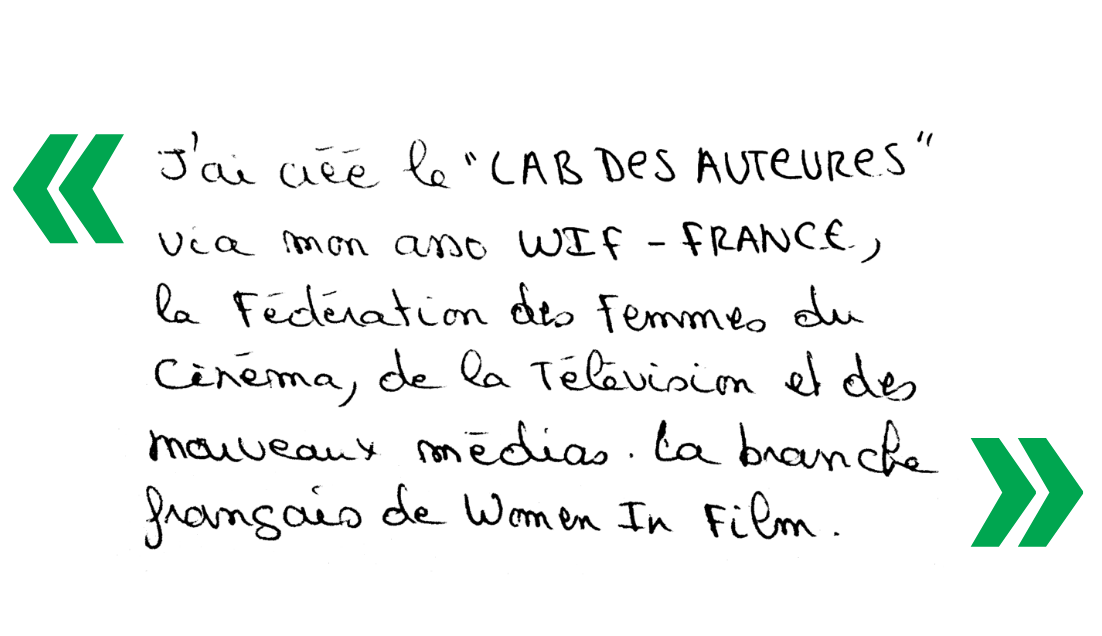 « J'ai créé le "LAB DES AUTEURES"
via mon asso WIF - FRANCE,
la Fédération des Femmes du
Cinéma, de la Télévision et des
nouveaux médias. La branche
français de Women In Film. »